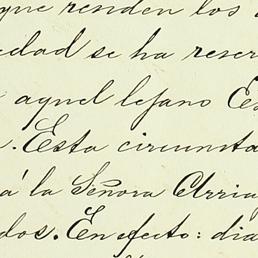 que renden los
edad se ha reser
aquel lejano Es
. Esta circunsta
á la Señora Arria
dos. En efecto: dia